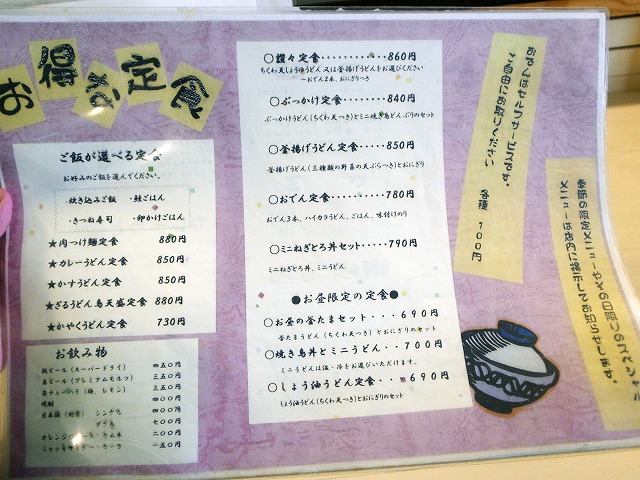 お得な定食
ご飯が選べる定食
お好みのご飯を選んでください。
・炊き込みご飯 ・鮭ごはん
・きつね寿司 ・卵かけごはん
★肉つけ麺定食 880円
★カレーうどん定食 850円
★かすうどん定食 850円
★ざるうどん鳥天盛定食 880円
★かやくうどん定食 730円
お飲み物
瓶ビール(スーパードライ) 四五〇円
生ビール(プレミアムモルツ) 三五〇円
酎チューハイ(梅、レモン) 三五〇円
焼酎 四〇〇円
日本酒(剣菱) シングル 四〇〇円
ダブル 七〇〇円
二〇〇円
一五〇円
○讃々定食・・・・・・・・・・860円
ちくわ天しょうゆうどん 又は釜揚げうどんをお選びください
～おでん2本、おにぎりつき
○ぶっかけ定食・・・・・・・・840円
ぶっかけうどん(ちくわ天つき)とミニ焼き鳥どんぶりのセット
○釜揚げうどん定食・・・・・・850円
釜揚げうどん(三種類の野菜の天ぷらつき)とおにぎり
○おでん定食・・・・・・・・・780円
おでん3本、ハイカラうどん、ごはん、味付けのり
○ミニねぎとろ丼セット・・・・790円
ミニねぎとろ丼、ミニうどん
●お昼限定の定食●
○お昼の釜たまセット・・・690円
釜たまうどん(ちくわ天つき)とおにぎりのセット
○焼き鳥丼とミニうどん・・700円
ミニうどんは温・冷をお選びいただけます。
○しょう油うどん定食・・・690円
しょう油うどん(ちくわ天つき)とおにぎりのセット
おでんはセルフサービスです。
ご自由にお取りください 各種 100円
季節の限定メニューやその日限りのスペシャル
メニューは店内に掲示してお知らせします。